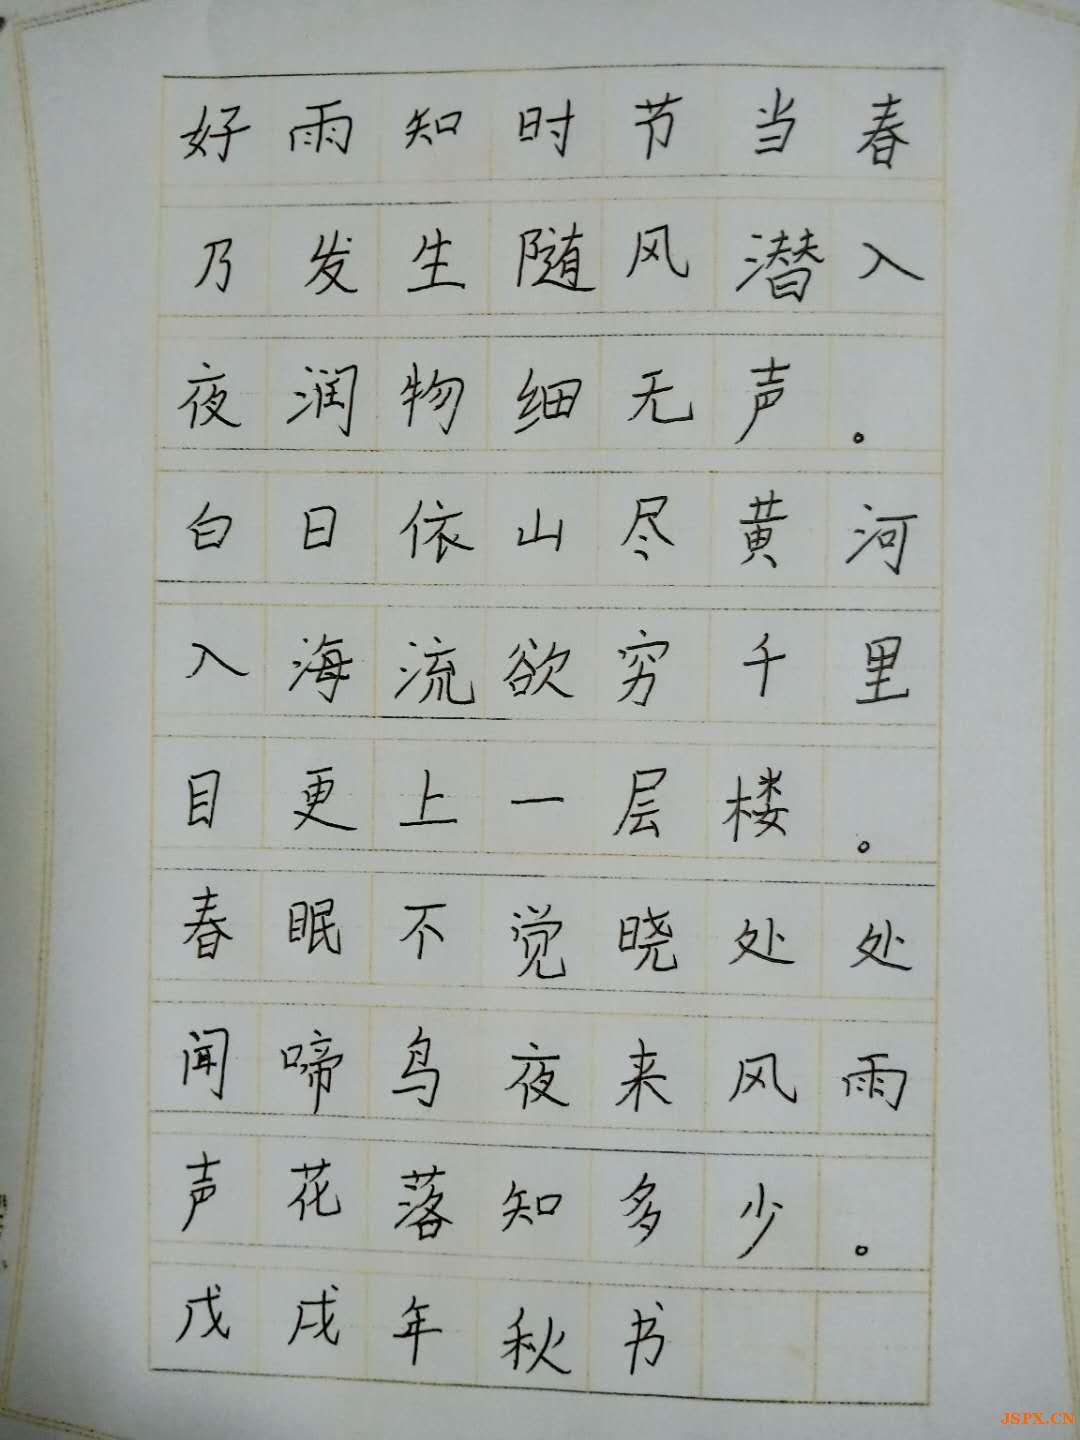 好雨知时节当春
乃发生随风潜入
夜润物细无声。
白日依山尽黄河
入海流欲穷千里
目更上一层楼。
春眠不觉晓处处
闻啼鸟夜来风雨
声花落知多少。
戊戌年秋书
JSPX.CN